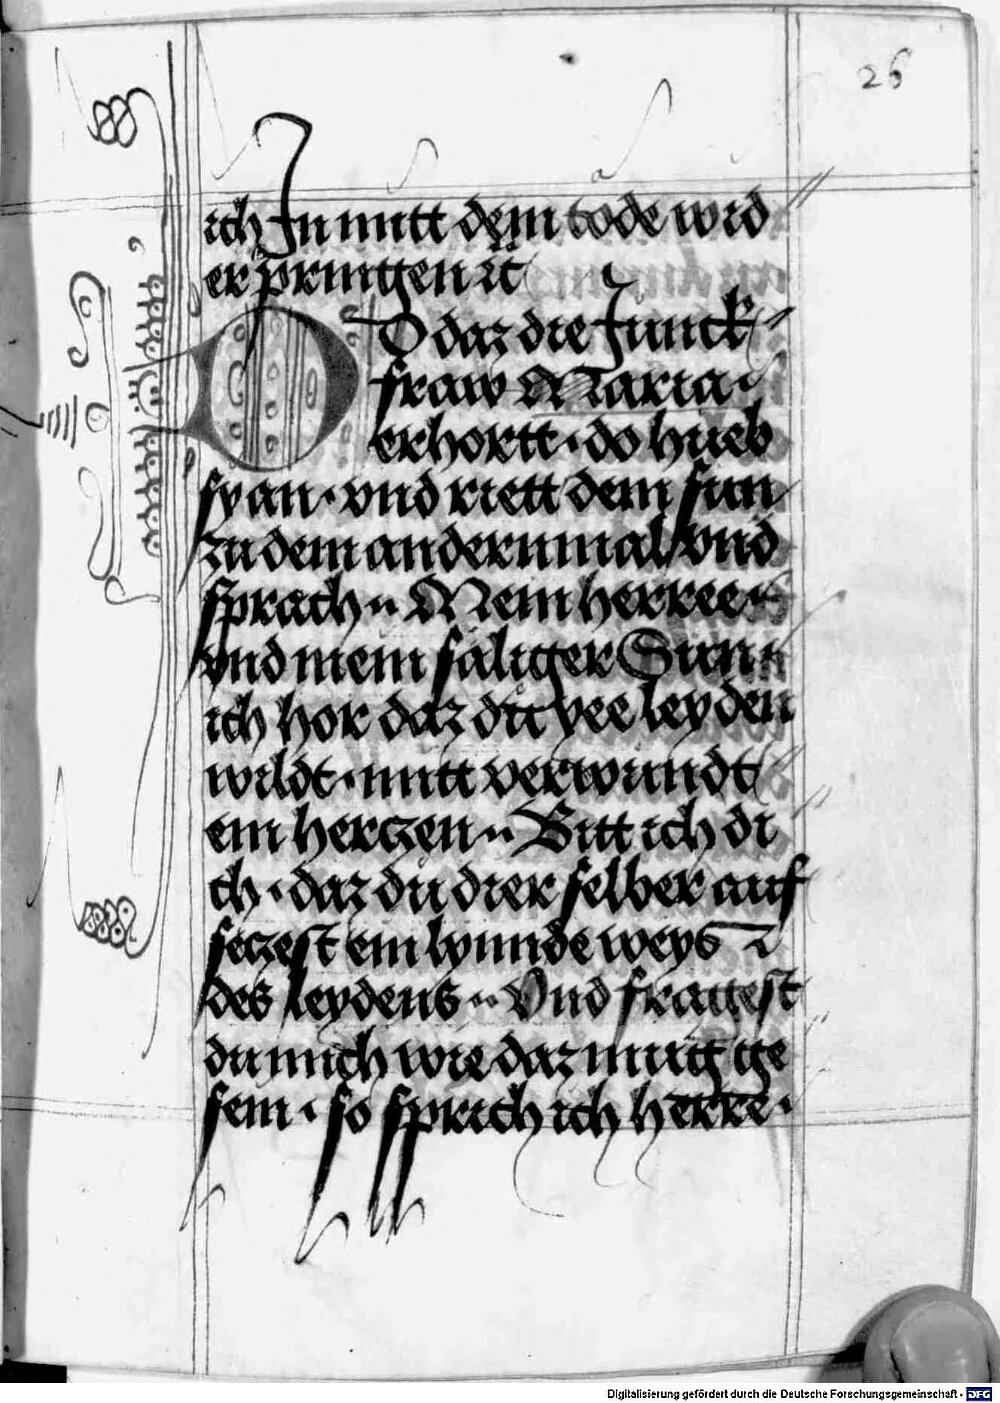 26
ich Jn mitt dem tode wid
er pringen ꝛc
DO daz die Junck
fraw Maria
erhortt · do hueb
sy an · vnd riett dem sun
zu dem andernmal vnd
sprach ·· Mein herree ··
vnd mein säliger Sun ··
ich hor daz du yee leyden
wildt · mitt verwundt
em herczen ·· Bitt ich di
ch · daz du dier selber auf
seczest ein lynnde weys
des leydens ·· Vnd fragest
du mich wie daz mug ge
sein · so sprich ich herre ·
Digitalisierung gefördert durch die Deutsche Forschungsgemeinschaft - DFG